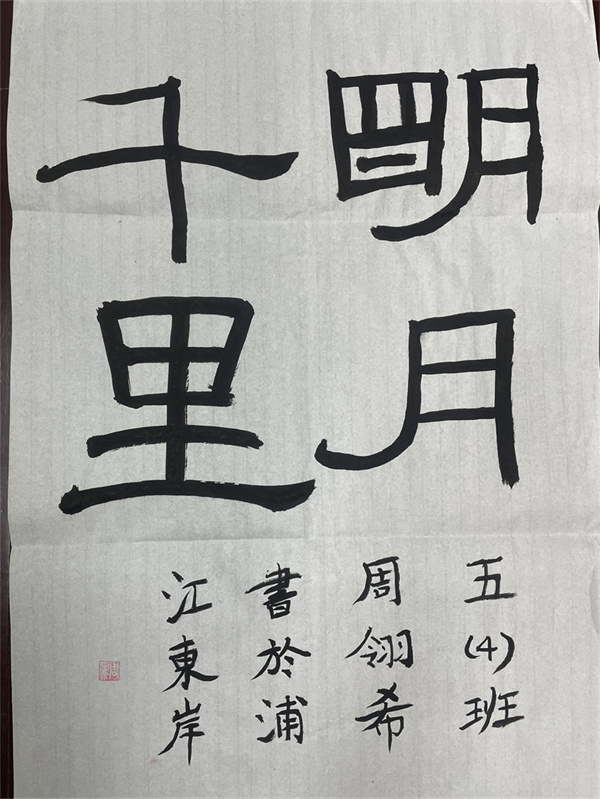 明月
千里
五(4)班
周翎希
書於浦
江東岸